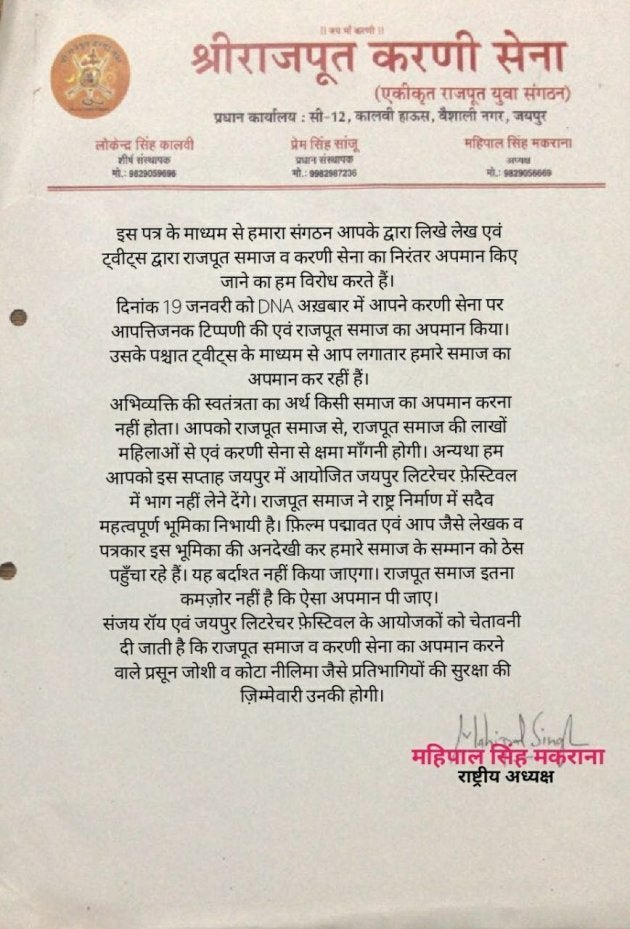 || जय माँ करणी ||
श्रीराजपूत करणी सेना
(एकीकृत राजपूत युवा संगठन)
प्रधान कार्यालय : सी-12, कालवी हाऊस, वैशाली नगर, जयपुर
लोकेन्द्र सिंह कालवी
शीर्ष संस्थापक
मो.: 9829059696
प्रेम सिंह सांजू
प्रधान संस्थापक
मो.: 9982987236
महिपाल सिंह मकराना
अध्यक्ष
मो.: 9829056669
इस पत्र के माध्यम से हमारा संगठन आपके द्वारा लिखे लेख एवं
ट्वीट्स द्वारा राजपूत समाज व करणी सेना का निरंतर अपमान किए
जाने का हम विरोध करते हैं।
दिनांक 19 जनवरी को DNA अख़बार में आपने करणी सेना पर
आपत्तिजनक टिप्पणी की एवं राजपूत समाज का अपमान किया।
उसके पश्चात ट्वीट्स के माध्यम से आप लगातार हमारे समाज का
अपमान कर रहीं हैं।
अभिव्यक्ति की स्वतंत्रता का अर्थ किसी समाज का अपमान करना
नहीं होता। आपको राजपूत समाज से, राजपूत समाज की लाखों
महिलाओं से एवं करणी सेना से क्षमा माँगनी होगी। अन्यथा हम
आपको इस सप्ताह जयपुर में आयोजित जयपुर लिटरेचर फ़ेस्टिवल
में भाग नहीं लेने देंगे। राजपूत समाज ने राष्ट्र निर्माण में सदैव
महत्वपूर्ण भूमिका निभायी है। फ़िल्म पद्मावत एवं आप जैसे लेखक व
पत्रकार इस भूमिका की अनदेखी कर हमारे समाज के सम्मान को ठेस
पहुँचा रहे हैं। यह बर्दाश्त नहीं किया जाएगा। राजपूत समाज इतना
कमज़ोर नहीं है कि ऐसा अपमान पी जाए।
संजय रॉय एवं जयपुर लिटरेचर फ़ेस्टिवल के आयोजकों को चेतावनी
दी जाती है कि राजपूत समाज व करणी सेना का अपमान करने
वाले प्रसून जोशी व कोटा नीलिमा जैसे प्रतिभागियों की सुरक्षा की
ज़िम्मेवारी उनकी होगी।
Mahipal Singh
महिपाल सिंह मकराना
राष्ट्रीय अध्यक्ष